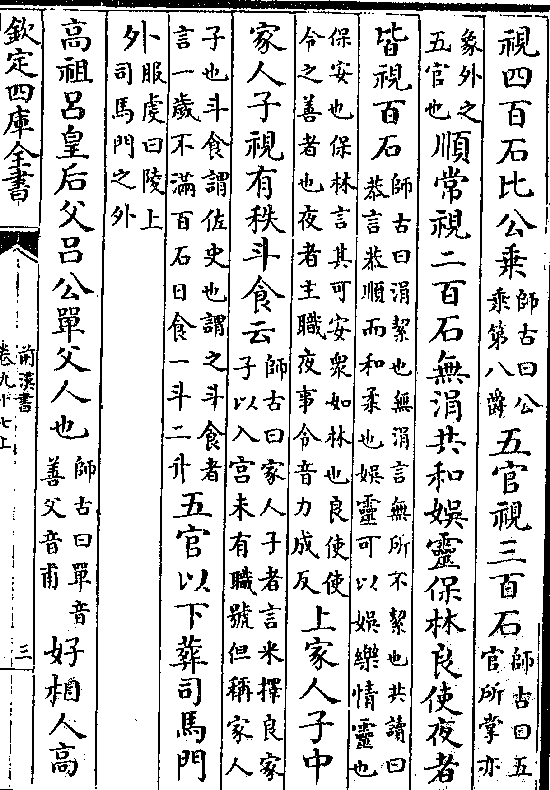 視四百石比公乘師古曰公乘第八爵五官視三百石師古曰五官所掌亦
象外之五官也順常視二百石無涓共和娛靈保林良使夜者
皆視百石師古曰涓絜也無涓言無所不絜也共讀曰恭言恭順而和柔也娛靈可以娛樂情靈也
保安也保林言其可安衆如林也良使使令之善者也夜者主職夜事令音力成反上家人子中
家人子視有秩斗食云師古曰家人子者言采擇良家子以入宫未有職號但稱家人
子也斗食謂佐史也謂之斗食者言一歲不滿百石日食一斗二升五官以下葬司馬門
外服虔曰陵上司馬門之外
高祖呂皇后父呂公單父人也師古曰單音善父音甫好相人高
欽定四庫全書
前漢書
卷九十七上
三